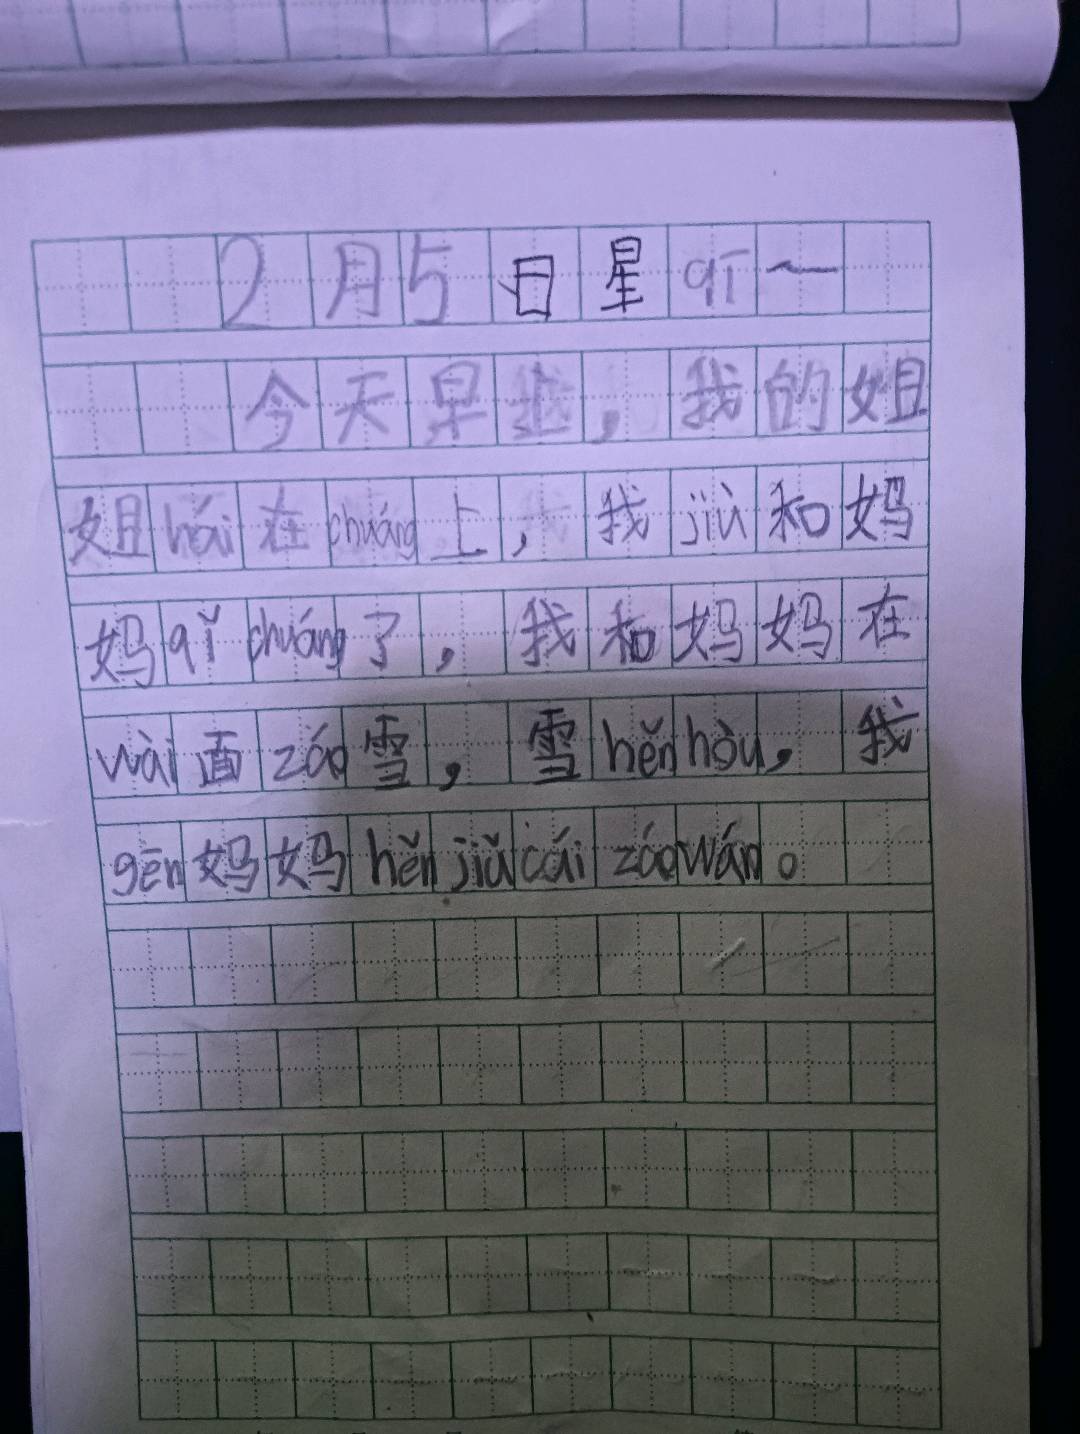 2月5日星qī一
今天早上，我的姐
姐hái在chuáng上，我jiù和妈
妈qǐchuáng了，我和妈妈在
wài面záo雪，雪hěnhòu，我
gēn妈妈hěnjiǔcáizáowán。